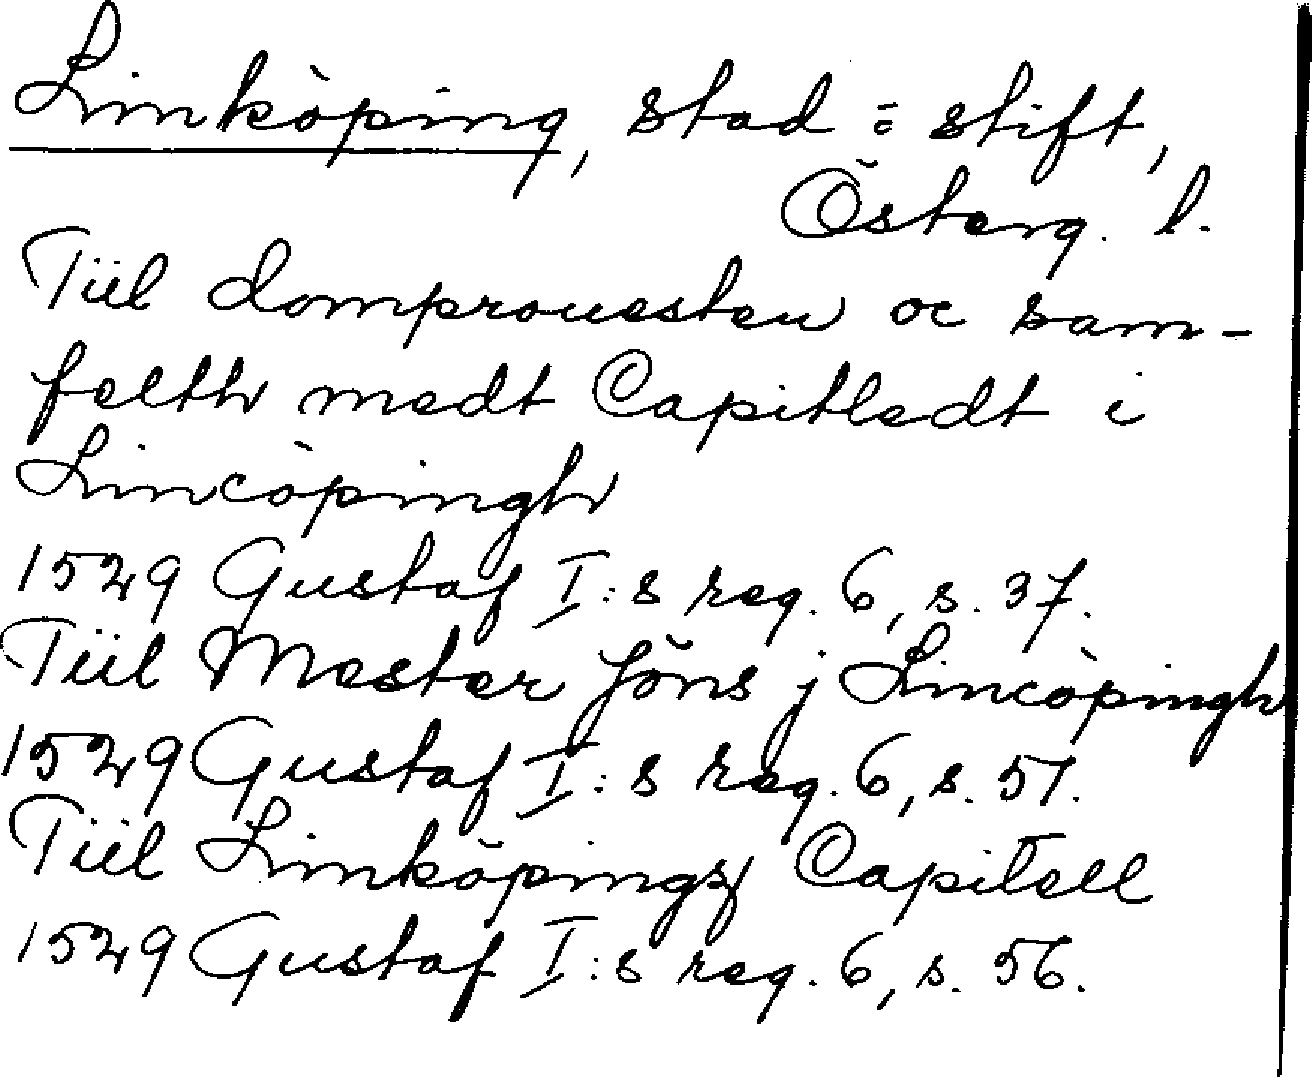 Linköping, stad o. stift,
Österg. l.
Tiil domprouesten oc sam-
felth medt Capitledt i
Lincöpingh
1529 Gustaf I:s reg. 6, s. 37.
Tiil Mester Jöns j Lincöpingh
1529 Gustaf I:s reg. 6, s. 51.
Tiil Linköpings Capitell
1529 Gustaf I:s reg. 6, s. 56.